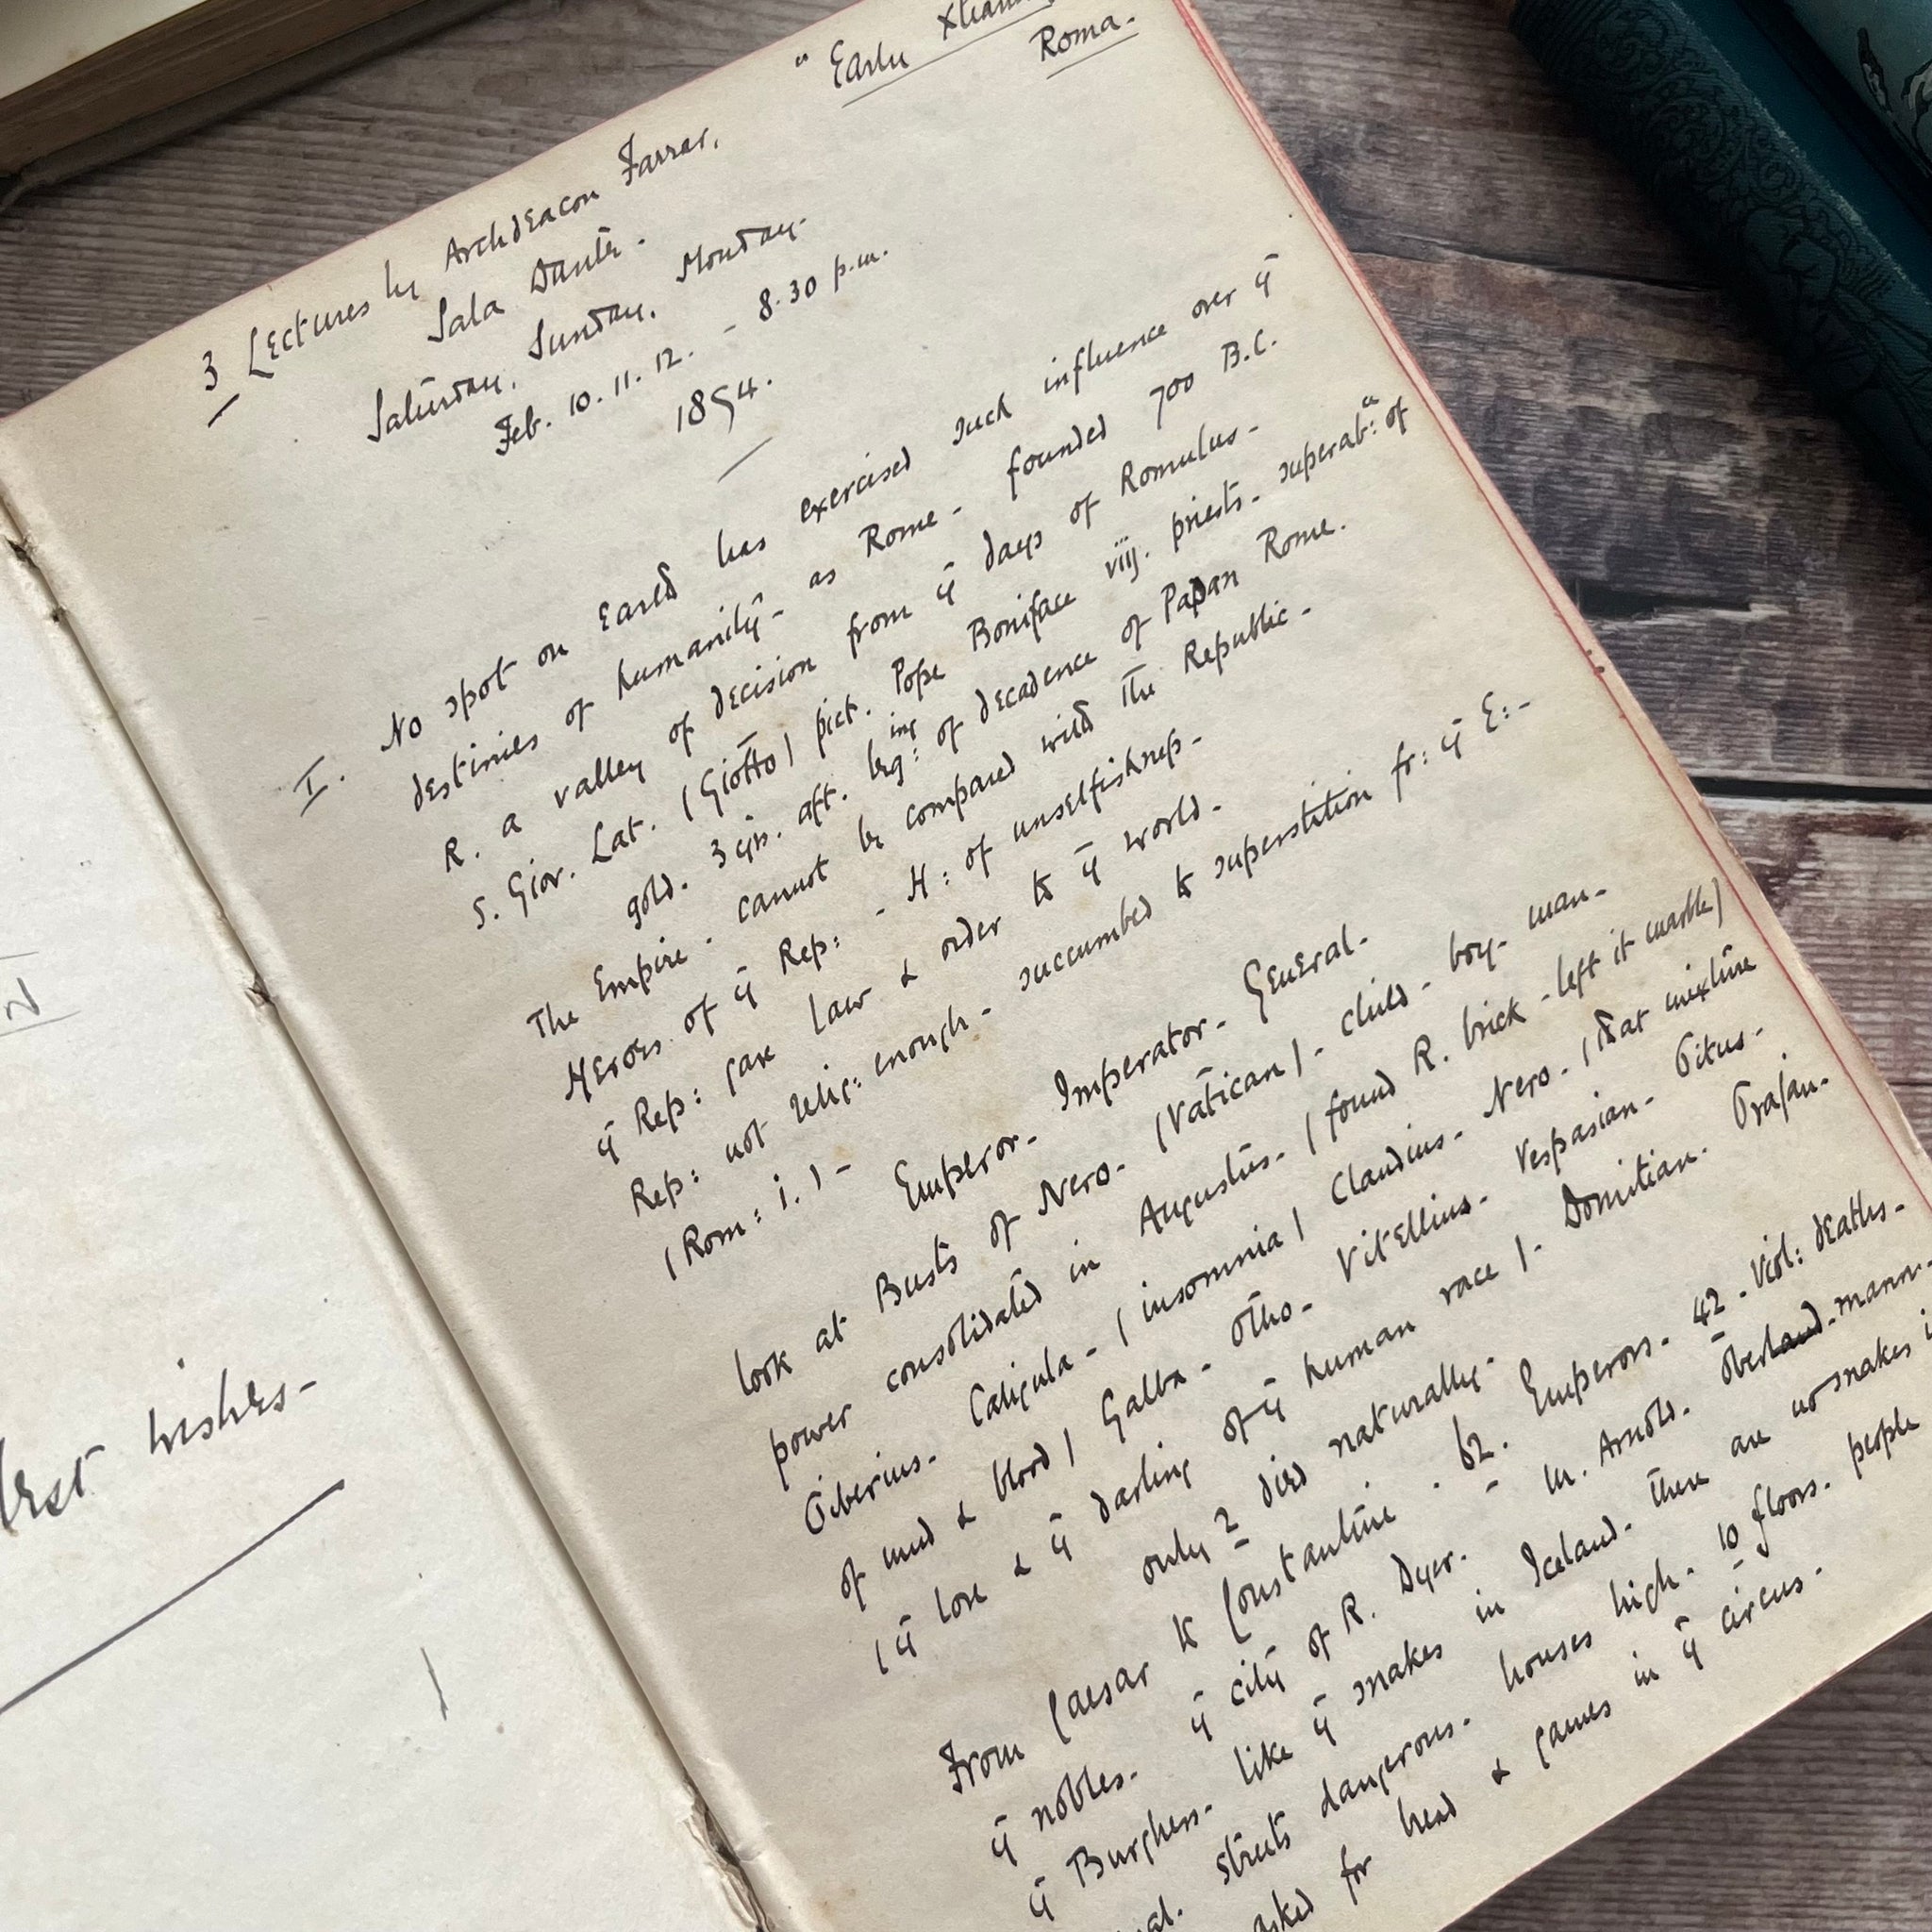 " Early Xtian
Roma.
3 Lectures by Archdeacon Farrar.
Sala Dante.
Saturday. Sunday. Monday.
Feb. 10. 11. 12. - 8.30 p.m.
1894.
I. No spot on Earth has exercised such influence over ȳ
destinies of humanity - as Rome - founded 700 B.C.
R. a valley of decision from ȳ days of Romulus -
S. Giov. Lat. (Giotto) pict. Pope Boniface viij. priests - superab: of
gold. 3 aft. beg:ing of decadence of Papan Rome.
The Empire - cannot be compared with The Republic -
Heroes of ȳ Rep: - H: of unselfishness -
ȳ Rep: gave law & order to ȳ world -
Rep: not relig: enough - succumbed to superstition fr: ȳ E: -
(Rom: i.) - Emperor - Imperator - General -
look at Busts of Nero - (Vatican) - child - boy - man -
power consolidated in Augustus - (found R. brick - left it marble)
Tiberius - Caligula - (insomnia) Claudius - Nero - (that mixture
of mud & blood) Galba - Otho - Vitellius - Vespasian - Titus -
(ȳ love & ȳ darling of ȳ human race) - Domitian - Trajan -
only 2 died naturally -
From Caesar to Constantine . 62. Emperors - 42 - Viol: deaths -
ȳ nobles - ȳ city of R. Dyer. - M. Arnold.
ȳ Burghers - like ȳ snakes in Iceland - there are no snakes
streets dangerous - houses high - 10 floors - people
asked for & games in ȳ circus -
Best wishes -